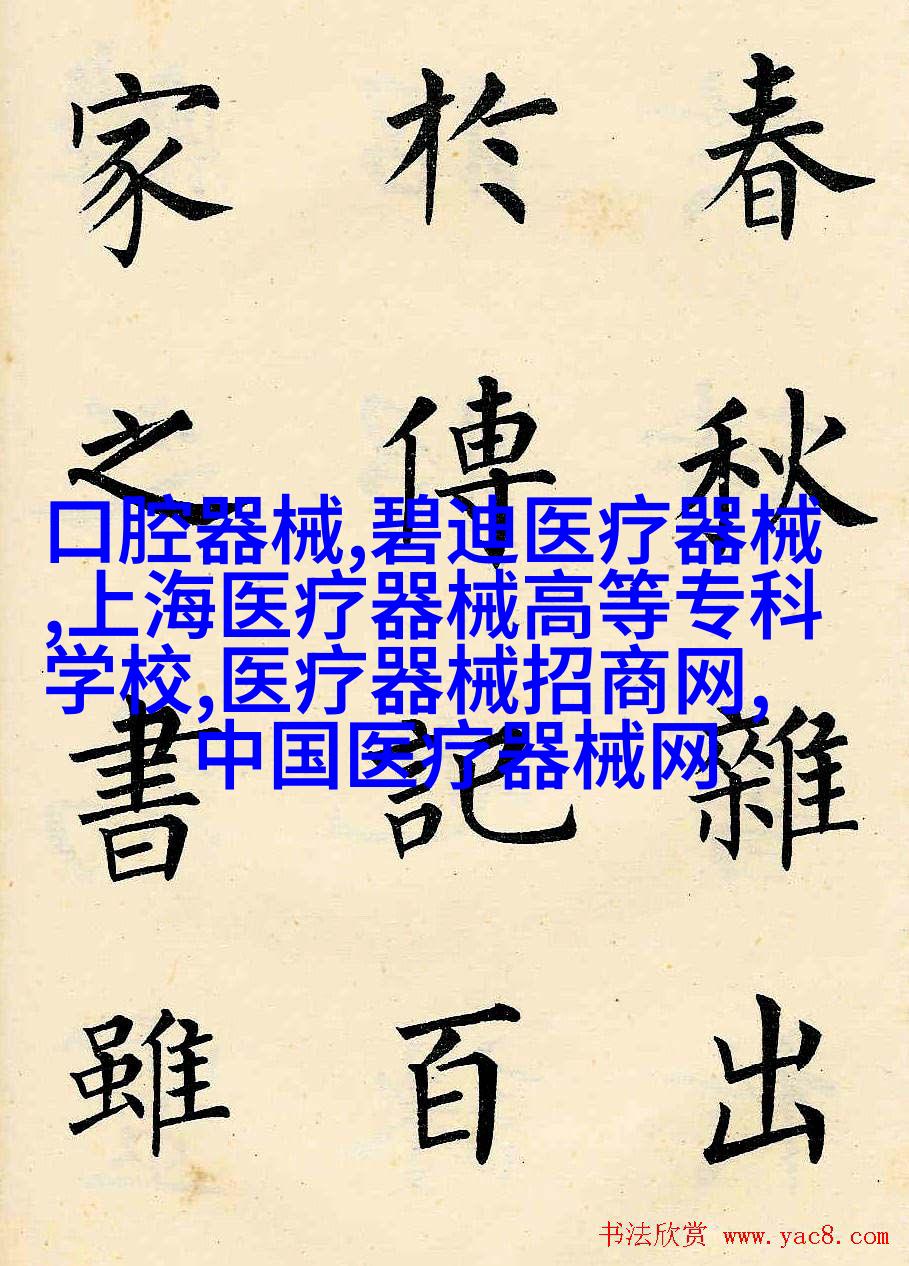 春秋雜出
於傳記百
家之書雖
口腔器械,碧迪医疗器械
,上海医疗器械高等专科
学校,医疗器械招商网,
中国医疗器械网
书法欣赏 www.yac8.com